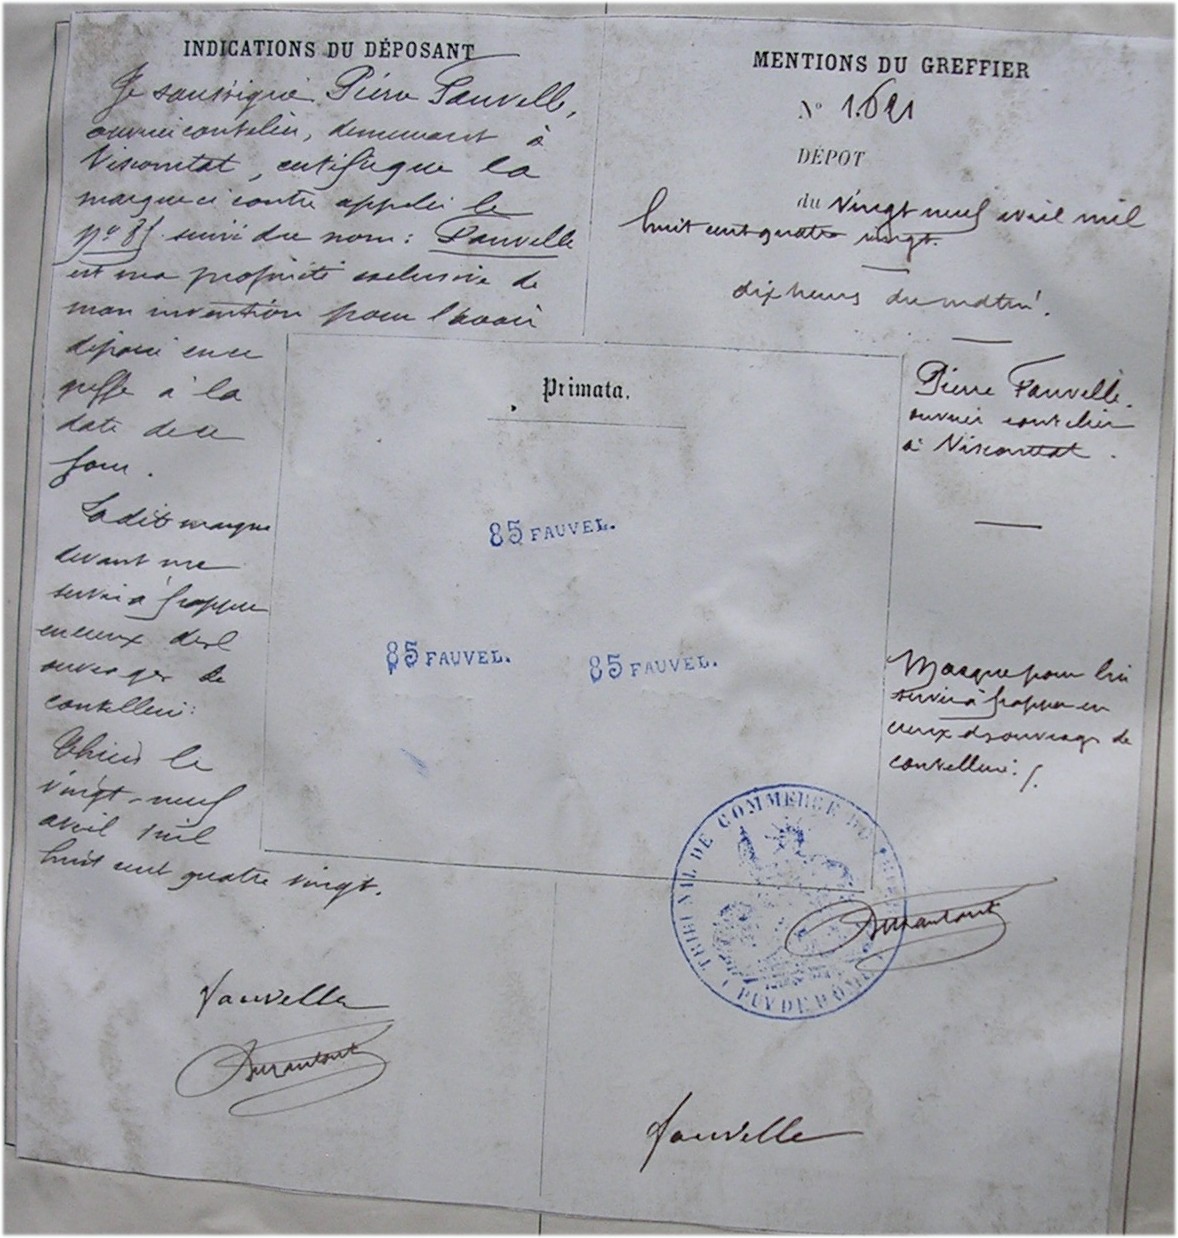 INDICATIONS DU DÉPOSANT
Je soussigné Pierre Fauvelle,
ouvrier coutelier, demeurant à
Viscomtat, certifie que la
marque ci contre appelée le
No 85 suivi du nom: Fauvelle
est ma propriété exclusive de
mon invention pour l'avoir
déposé en ce
greffe à la
date de ce
jour.
La dit marque
devant me
servir à frapper
en creux des
ouvrages de
coutellerie:
Thiers le
vingt-neuf
avril mil
huit cent quatre vingt.
Fauvelle
MENTIONS DU GREFFIER
No 1.621
DÉPOT
du vingt neuf avril mil
huit cent quatre vingt.
dix heures du matin.
Pierre Fauvelle.
ouvrier coutelier
à Viscomtat.
Marque pour lui
servir à frapper en
creux des ouvrages de
coutellerie:
Primata.
85 FAUVEL.
85 FAUVEL.
85 FAUVEL.
TRIBUNAL DE COMMERCE DE THIERS
PUY DE DÔME
Fauvelle